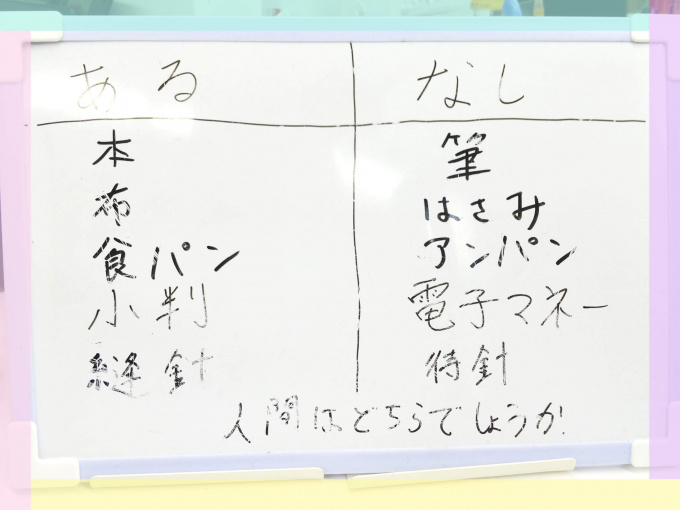 ある なし
本 筆
布 はさみ
食パン アンパン
小判 電子マネー
縫針 待針
人間はどちらでしょうか!